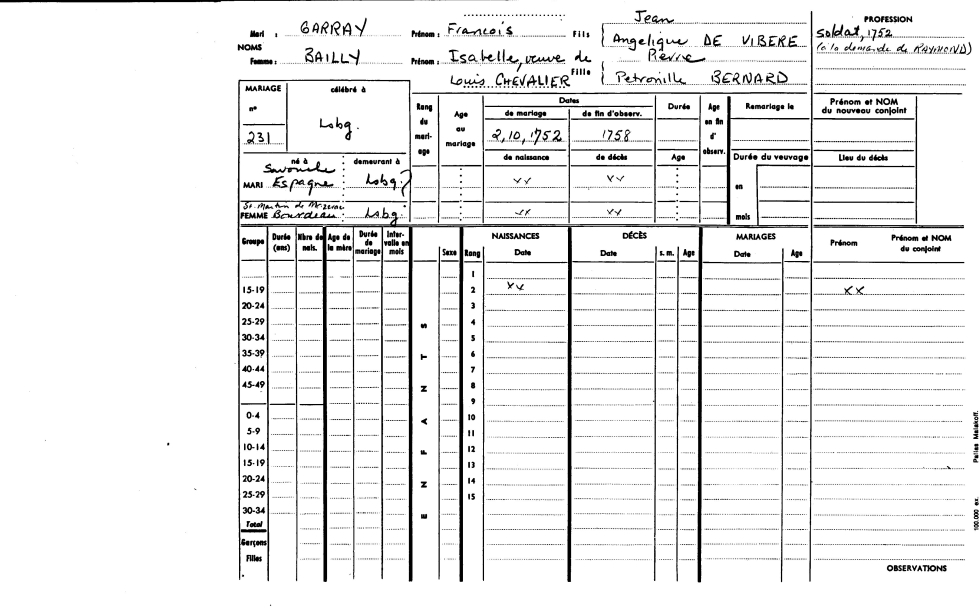 Jean
PROFESSION
Mari : GARRAY Prénom : Francois Fils { Angelique DE VIBERE
Soldat, 1752
(à la demande de RAYMOND)
NOMS
Femme : BAILLY Prénom : Isabelle, veuve de Louis CHEVALIER Fille { Pierre
Petronille BERNARD
MARIAGE célébré à
n° 231 Lsbg.
Rang du mari-age
Age au mariage
Dates
de mariage de fin d'observ.
2, 10, 1752 1758
de naissance de décès
Durée
Age
Age en fin d' observ.
Remariage le
Durée du veuvage
en
mois
Prénom et NOM du nouveau conjoint
Lieu du décès
né à demeurant à
MARI Espagne Lsbg.? xx xx
St. Martin de
FEMME Bourdeau : Lsbg. xx xx
Groupe Durée (ans) Nbre de nais. Age de la mère Durée de mariage Inter-valle en mois
Sexe Rang NAISSANCES Date DÉCÈS Date s. m. Age MARIAGES Date Age Prénom Prénom et NOM du conjoint
1
15-19 2 xx xx
20-24 3
25-29 S 4
30-34 5
35-39 T 6
40-44 7
45-49 N 8
9
0-4 A 10
5-9 11
10-14 F 12
15-19 13
20-24 N 14
25-29 15
30-34 E
Total
Garçons
Filles
OBSERVATIONS
100.000 ex. Parlies Malakoff.